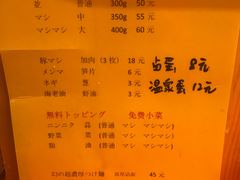 並 普通 300g 50 元
マシ 中 350g 55 元
マシマシ 大 400g 60 元
豚マシ 加肉（3 枚） 18 元
メンマ 笋片 6 元
ネギ 葱 3 元
海老油 虾油 3 元
卤蛋 8元
温泉蛋 12元
無料トッピング 免费小菜
ニンニク 蒜 （普通 マシ マシマシ）
野菜 菜 （普通 マシ マシマシ）
脂 油 （普通 マシ マシマシ）
幻の超濃厚つけ麺 45 元